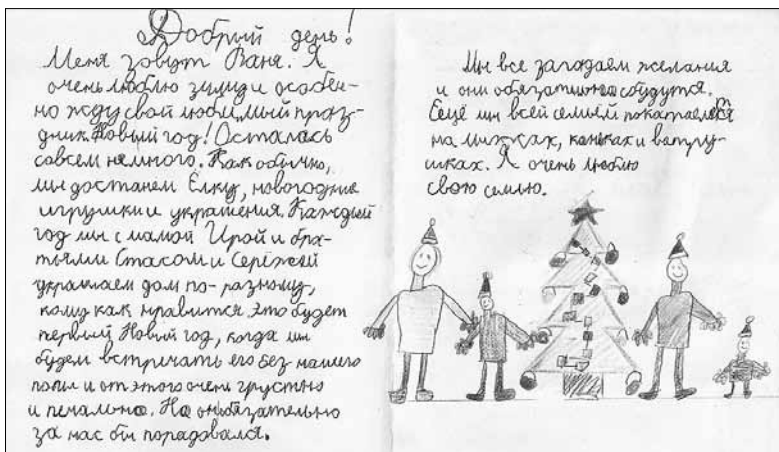 Добрый день!
Меня зовут Ваня. Я
очень люблю зиму и особен-
но жду свой любимый праз-
дник Новый год! Осталась
совсем немного. Как обычно,
мы достанем Ёлку, новогодние
игрушки и украшения. Каждый
год мы с мамой Ирой и бра-
тьями Стасом и Серёжей
украшаем дом по-разному,
кому как нравится. Это будет
первый Новый год, когда мы
будем встречать его без нашего
папы и от этого очень грустно
и печально. Но он обязательно
за нас бы порадовался.
Мы все загадаем желания
и они обязательно сбудутся.
Ещё мы всей семьёй покатаемся
на лыжах, коньках и ватру-
шках. Я очень люблю
свою семью.